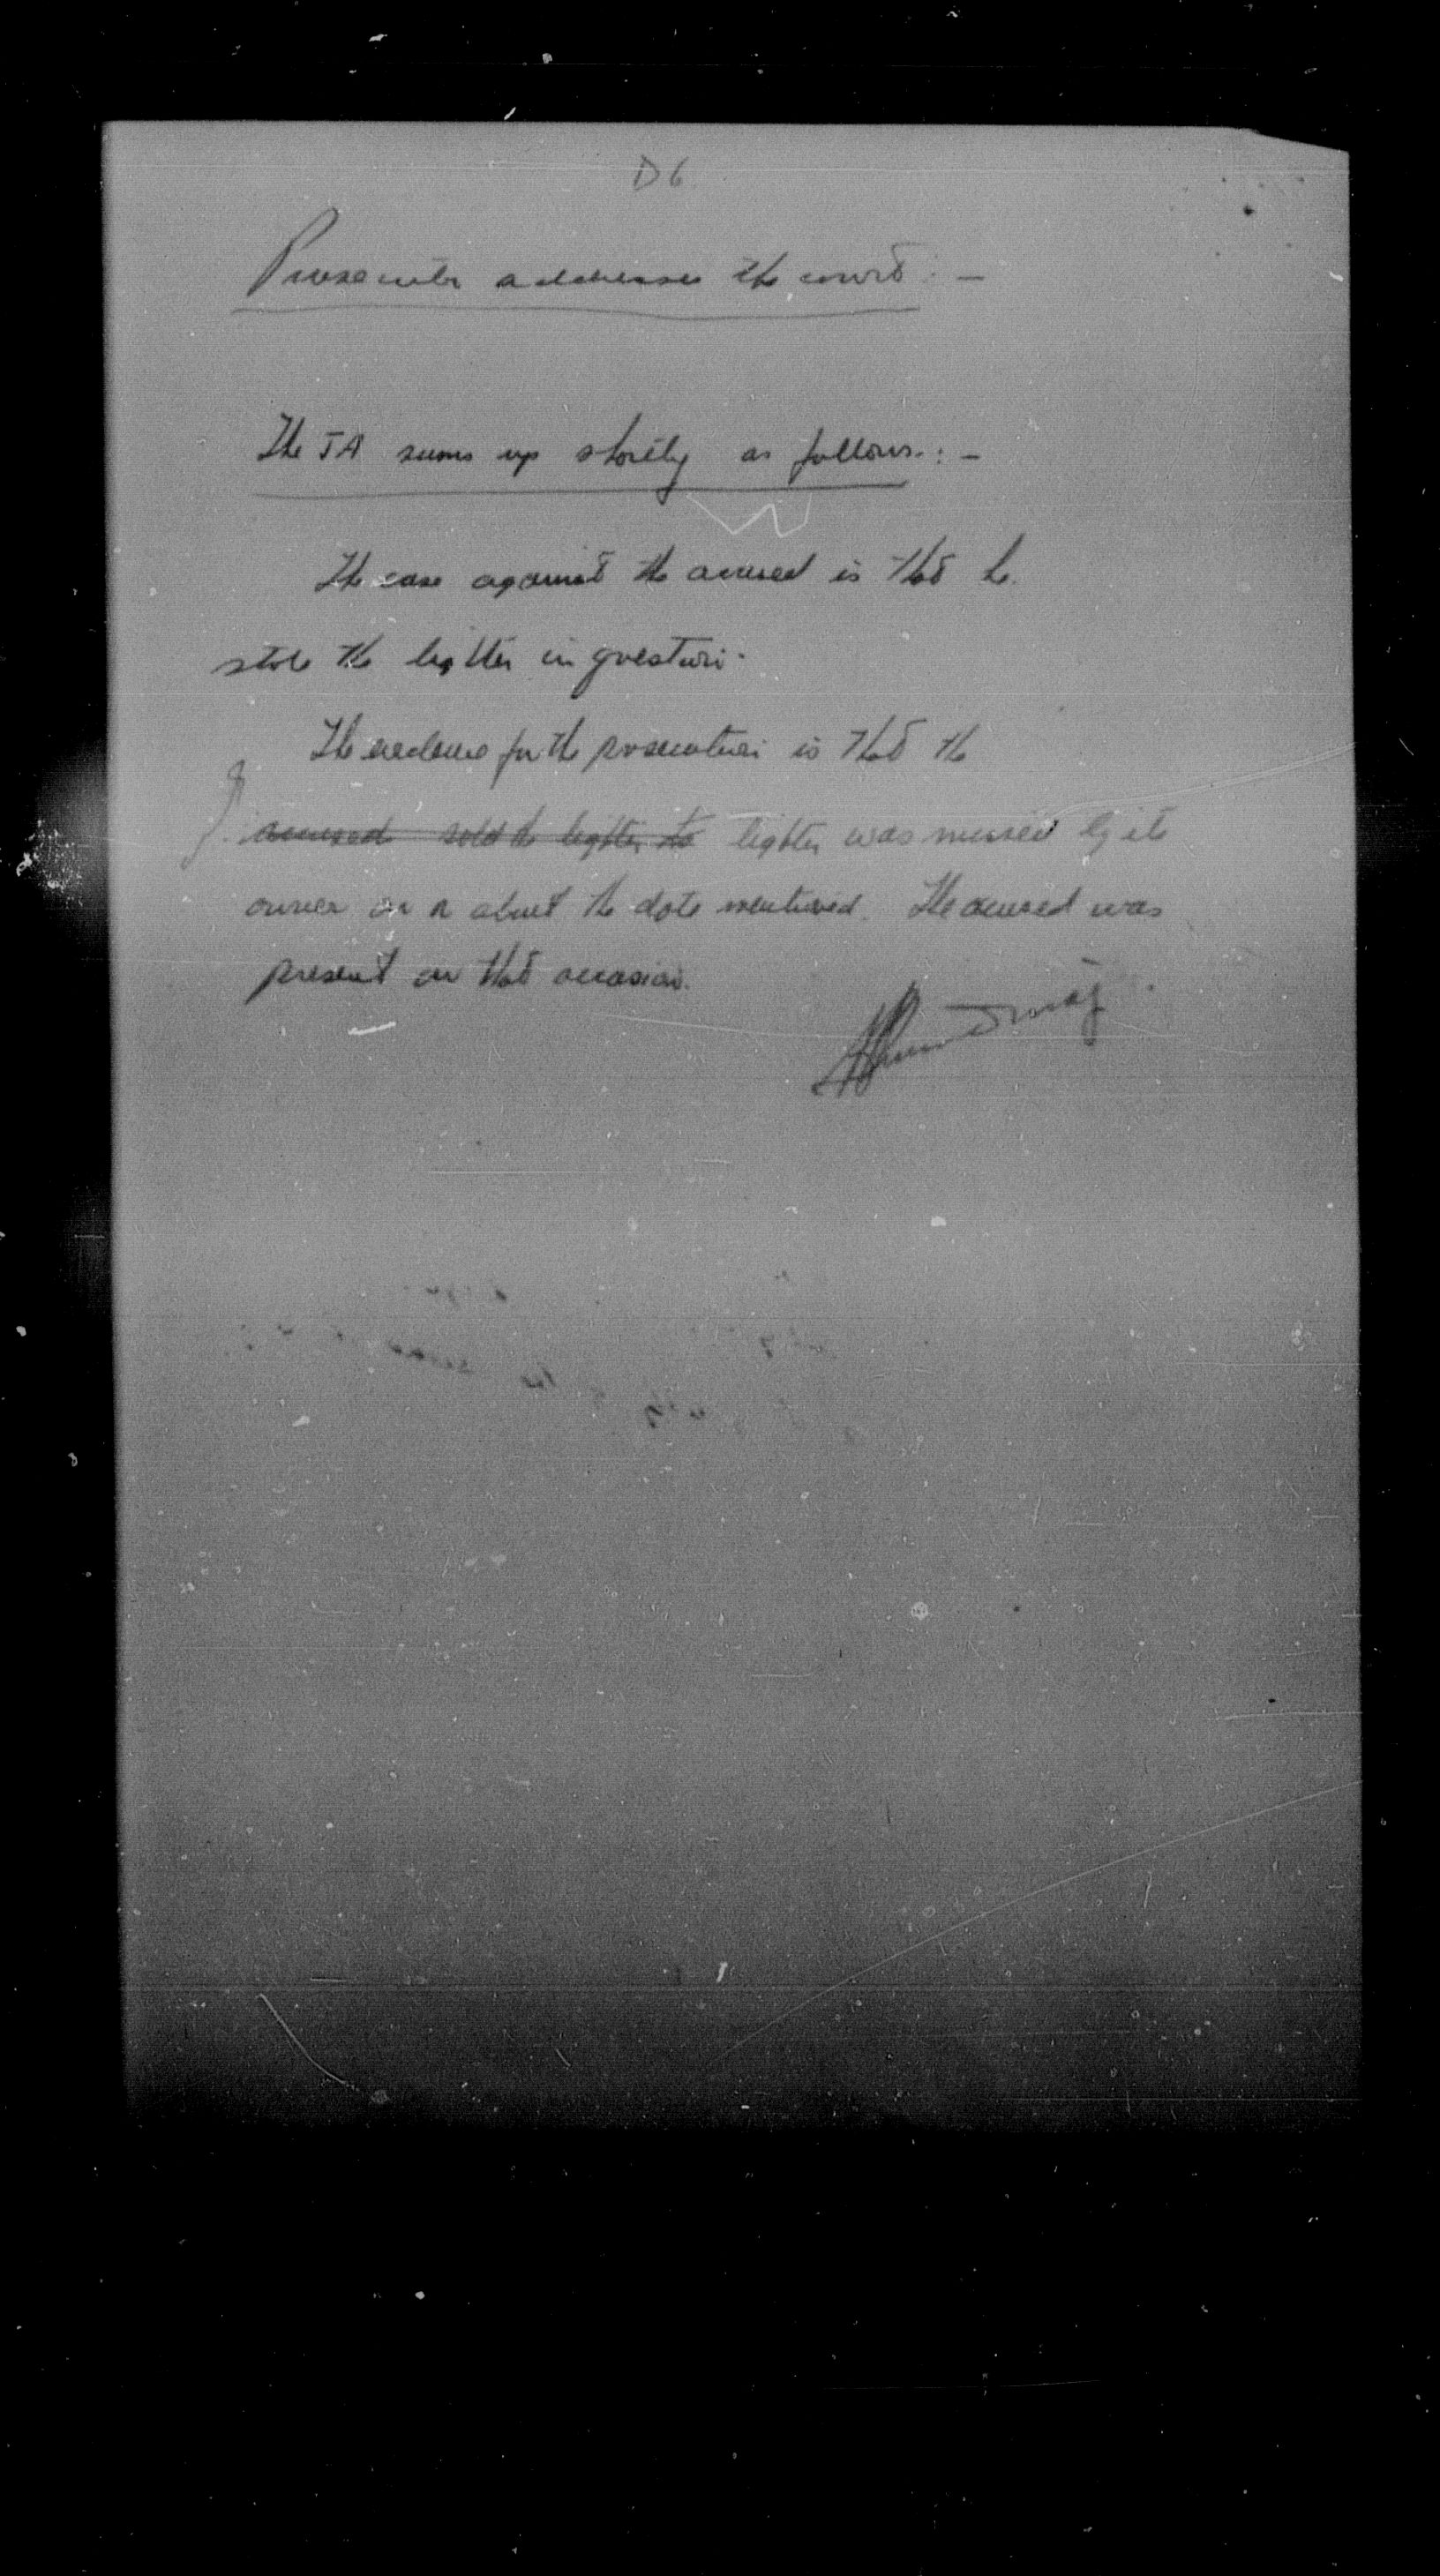 D6.
Prosecutor addresses the court : -
The JA sums up shortly as follows : -
The case against the accused is that he
stole the lighter in question.
The evidence for the prosecution is that the
accused sold the lighter to lighter was missed by its
owner on or about the date mentioned. The accused was
present on that occasion.
Maj